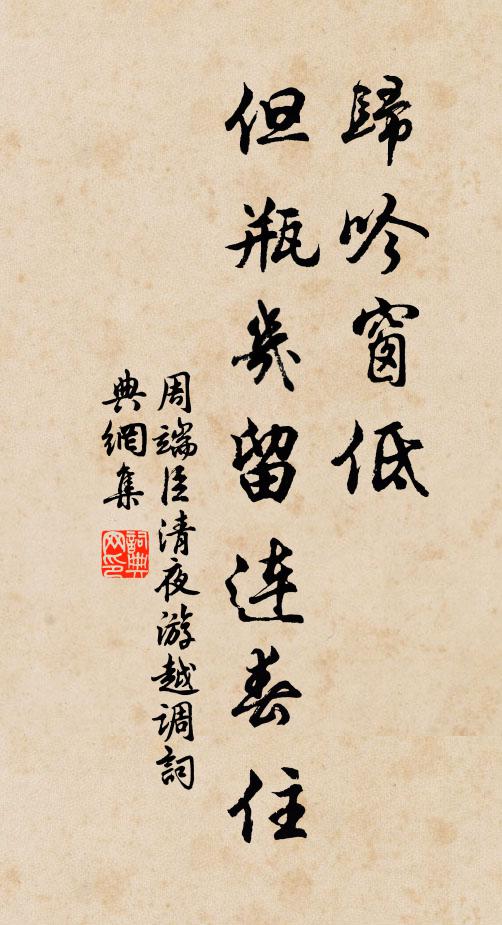 歸吟窗低
但瓶幾留連春住
周端臣清夜游越调詞
典網集
詞典网印